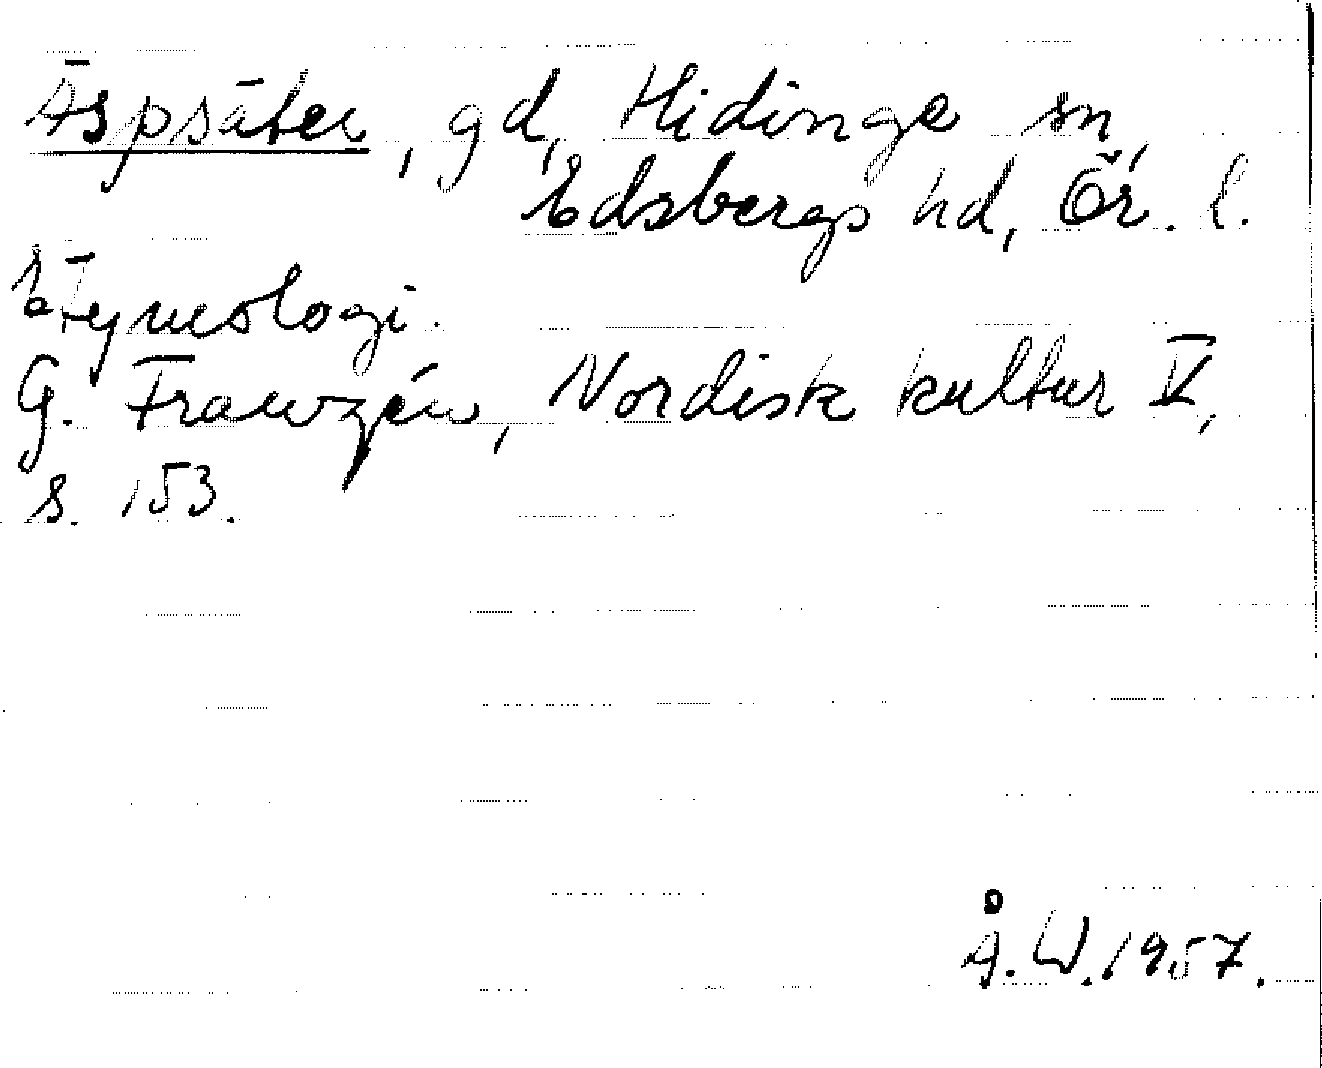 Äspsäter, gd, Hidinge sn,
Edsbergs hd, Ör. l.
Etymologi.
G. Franzén, Nordisk kultur V,
s. 153.
Å. W. 1957.